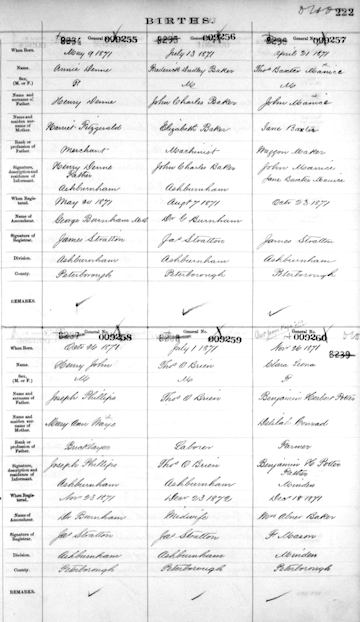 222
BIRTHS.
General No. 009255
009256
General No. 009257
When Born. May 9 1871 July 13 1871 April 21 1871
Name. Annie Frederick Dudley Baker Thos Baxter
Sex, (M. or F.) F M M
Name and surname of Father. Henry John Charles Baker John
Name and maiden surname of Mother. Harriet Fitzgerald Elizabeth Baker Jane Baxter
Rank or profession of Father. Merchant Machinist Waggon Maker
Signature, description and residence of Informant. Henry John Charles Baker John
Father Jane Baxter
Ashburnham Ashburnham
When Registered. May 20 1871 Augt 7 1871 Octr 23 1871
Name of Accoucheur. George Burnham M.D. Dr G Burnham
Signature of Registrar. James Stratton Jas Stratton James Stratton
Division. Ashburnham Ashburnham Ashburnham
County. Peterborough Peterborough Peterborough
REMARKS.
General No. 009258
General No. 009259
General No. 009260
8239
When Born. Oct 26 1871 July 1 1871 Nov 26 1871
Name. Henry John Thos O Brien Clara
Sex (M. or F.) M M F
Name and surname of Father. Joseph Phillips Thos O Brien Benjamin Herbert Potter
Name and maiden surname of Mother. Mary Ann Delilah Conrad
Rank or profession of Father. Bricklayer Laborer Farmer
Signature, description and residence of Informant. Joseph Phillips Thos O Brien Benjamin H Potter
Father
Ashburnham Ashburnham
When Registered. Nov 23 1871 Decr 23 1872 Decr 18 1871
Name of Accoucheur. Dr Burnham Midwife Mrs Abner Baker
Signature of Registrar. Jas Stratton Jas Stratton F Mason
Division. Ashburnham Ashburnham
County. Peterborough Peterborough Peterborough
REMARKS.